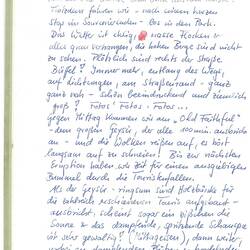 Trotzdem fahren wir - nach einem kurzen
Stop im Souvenierladen - los in den Park.
Das Wetter ist eklig, nasse Flocken &
alles grau verhangen, die hohen Berge sind nicht
zu sehen. Plötzlich rechts der Straße
Büffel! Immer mehr, entlang des Wegs,
auf Lichtungen, am Straßenrand - ganz
ganz nah - schön beeindruckend und ziemlich
groß! Fotos! Fotos. Fotos...
Gegen Mittag kommen wir am "Old Faithful" -
dem großen Geysir, der alle 100 min. ausbricht
an - und die Wolken reißen auf, es hört
langsam auf zu schneien! Bis zur nächsten
Eruption haben wir Zeit für einen ausgiebigen
Bummel durch die Touristenfallen.
Als der Geysir - ringsum sind Holzbänke für
die Touris aufgebaut -
ausbricht, scheint sogar ein bißchen die
Sonne & das dampfende, spritzende Schauspiel
ist sehr gewaltig!